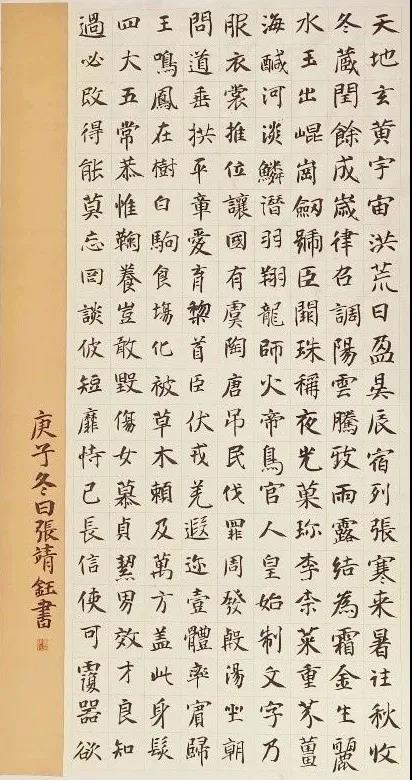 天地玄黃宇宙洪荒日盈昃辰宿列張寒来暑往秋收
冬藏閏餘成歲律召調陽雲騰致雨露結為霜金生麗
水玉出崐崗劒號臣闕珠稱夜光菓珍李柰菜重芥薑
海醎河淡鱗潛羽翔龍師火帝鳥官人皇始制文字乃
服衣裳推位讓國有虞陶唐吊民伐罪周發殷湯坐朝
問道垂拱平章愛育黎首臣伏戎羌遐迩壹體率賓歸
王鳴鳳在樹白駒食場化被草木賴及萬方盖此身髮
四大五常恭惟鞠養豈敢毀傷女慕貞絜男效才良知
過必改得能莫忘罔談彼短靡恃己長信使可覆器欲
庚子冬日張靖鈺書